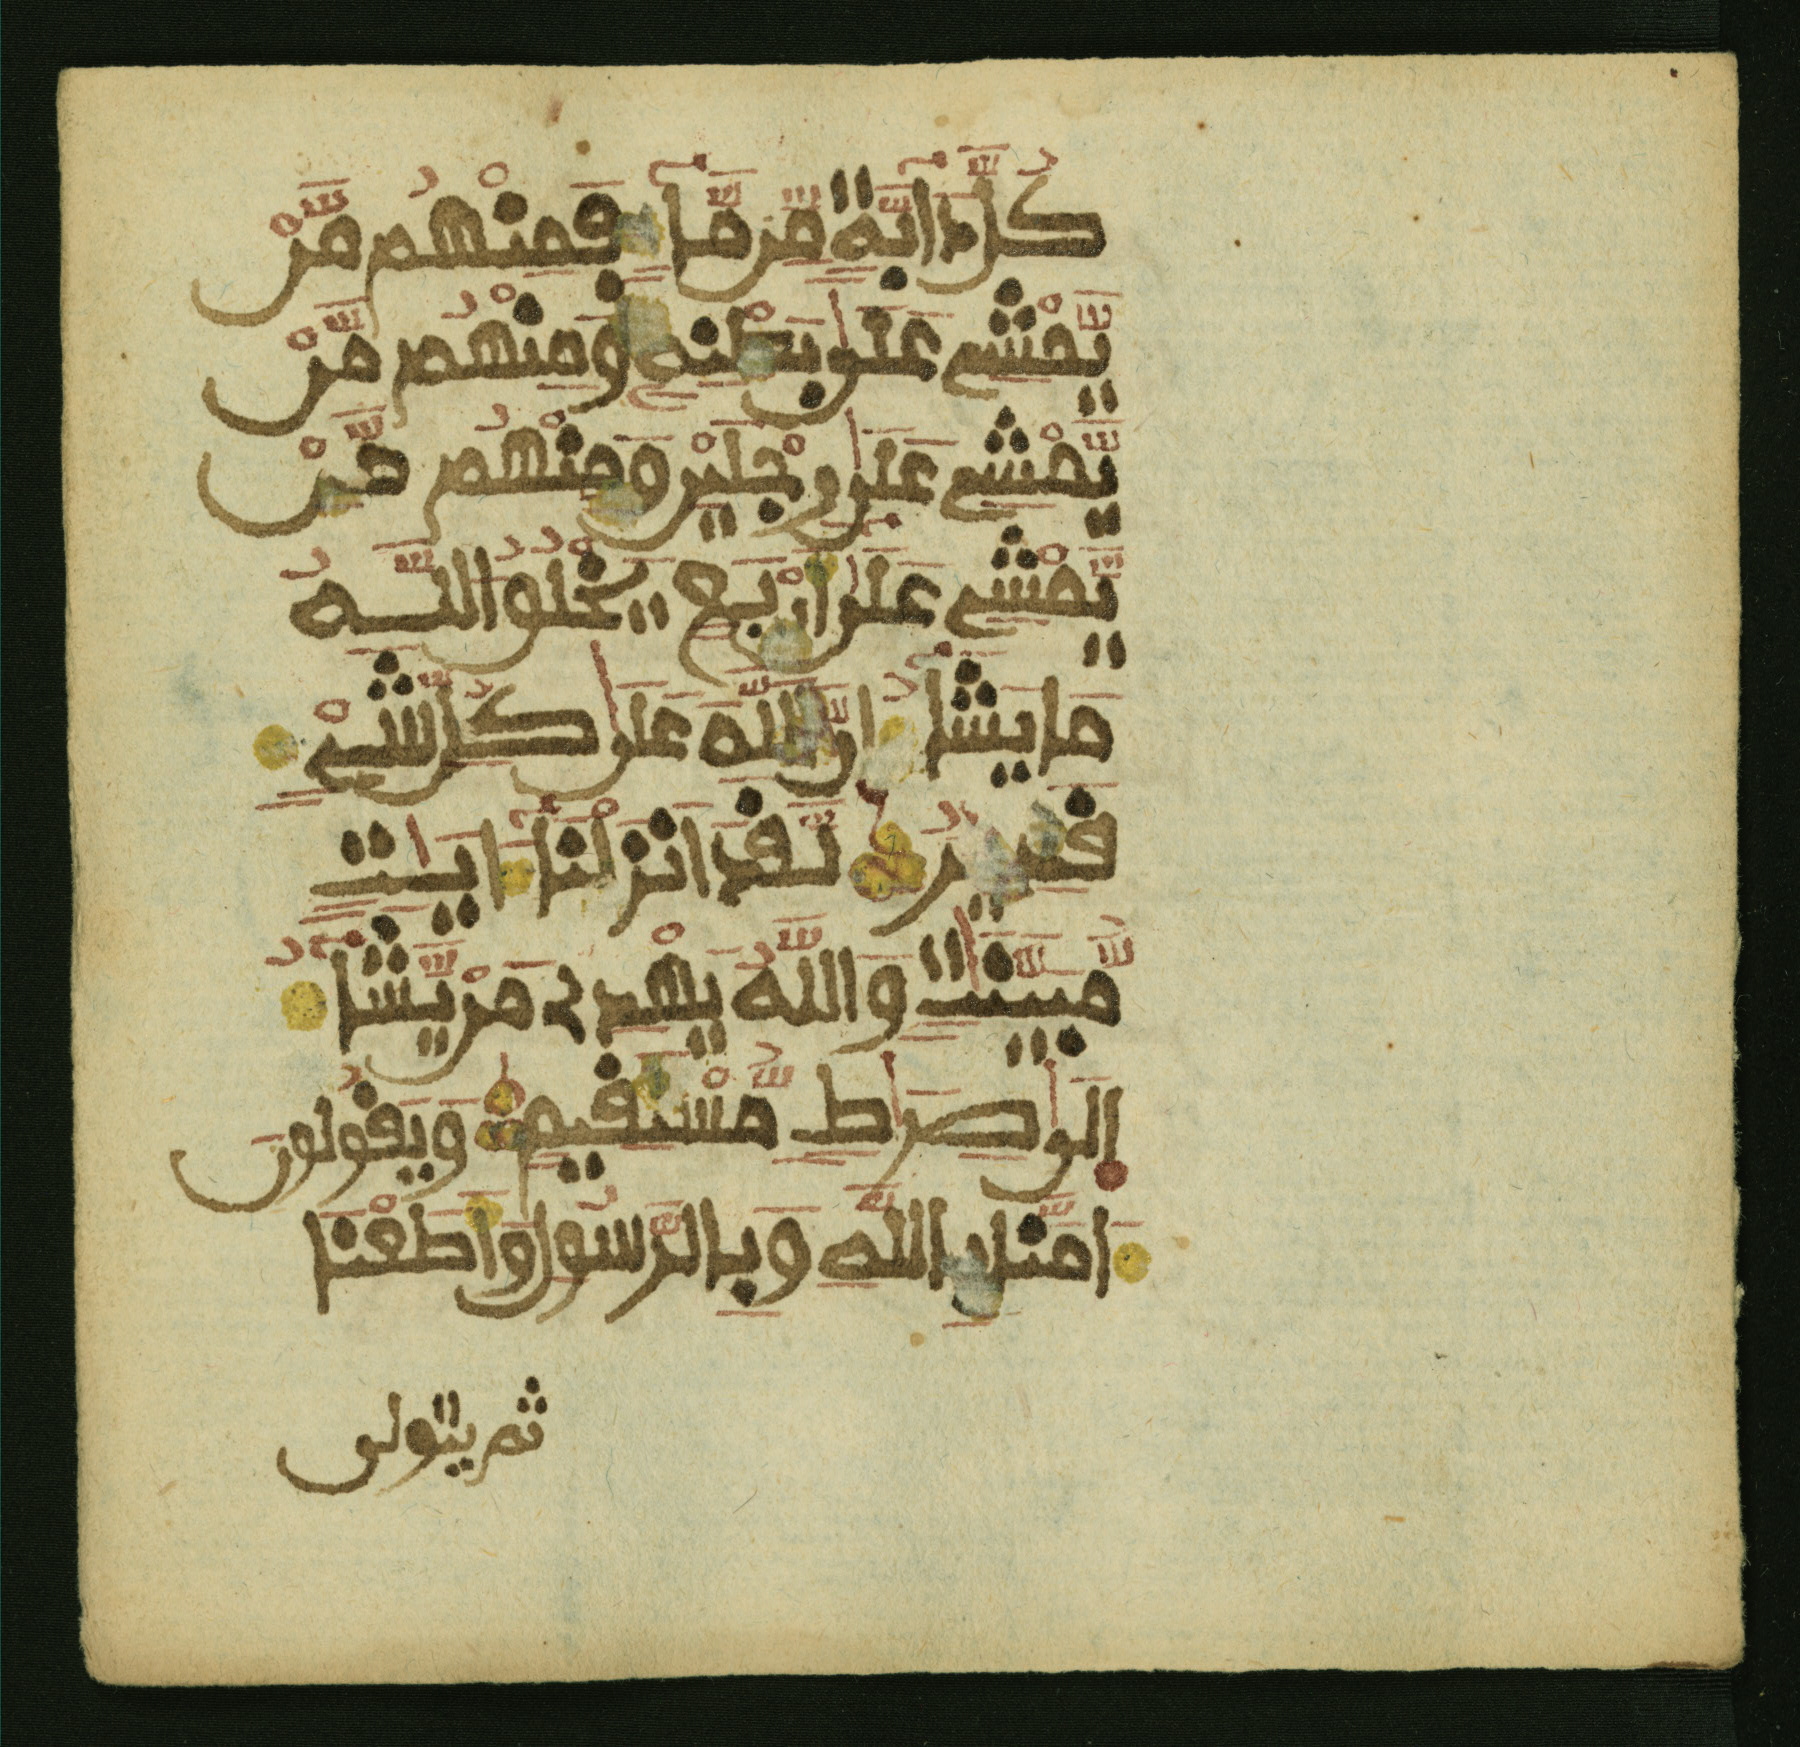 كُلَّ دَآبَّةٍ مِّن مَّآءٍ فَمِنْهُم مَّنْ
يَّمْشِي عَلَىٰ بَطْنِهِ وَمِنْهُم مَّنْ
يَّمْشِي عَلَىٰ رِجْلَيْنِ وَمِنْهُم مَّنْ
يَّمْشِي عَلَىٰ أَرْبَعٍ يَخْلُقُ اللَّهُ
مَا يَشَآءُ اِنَّ اللَّهَ عَلَىٰ كُلِّ شَيْءٍ
قَدِيرٌ لَّقَدَ اَنزَلْنَآ ءَايَٰتٍ
مُّبَيَّنَٰتٍ وَاللَّهُ يَهْدِي مَنْ يَّشَآءُ
اِلَىٰ صِرَٰطٍ مُّسْتَقِيمٍ وَيَقُولُونَ
ءَامَنَّا بِاللَّهِ وَبِالرَّسُولِ وَأَطَعْنَا
ثم يتولى